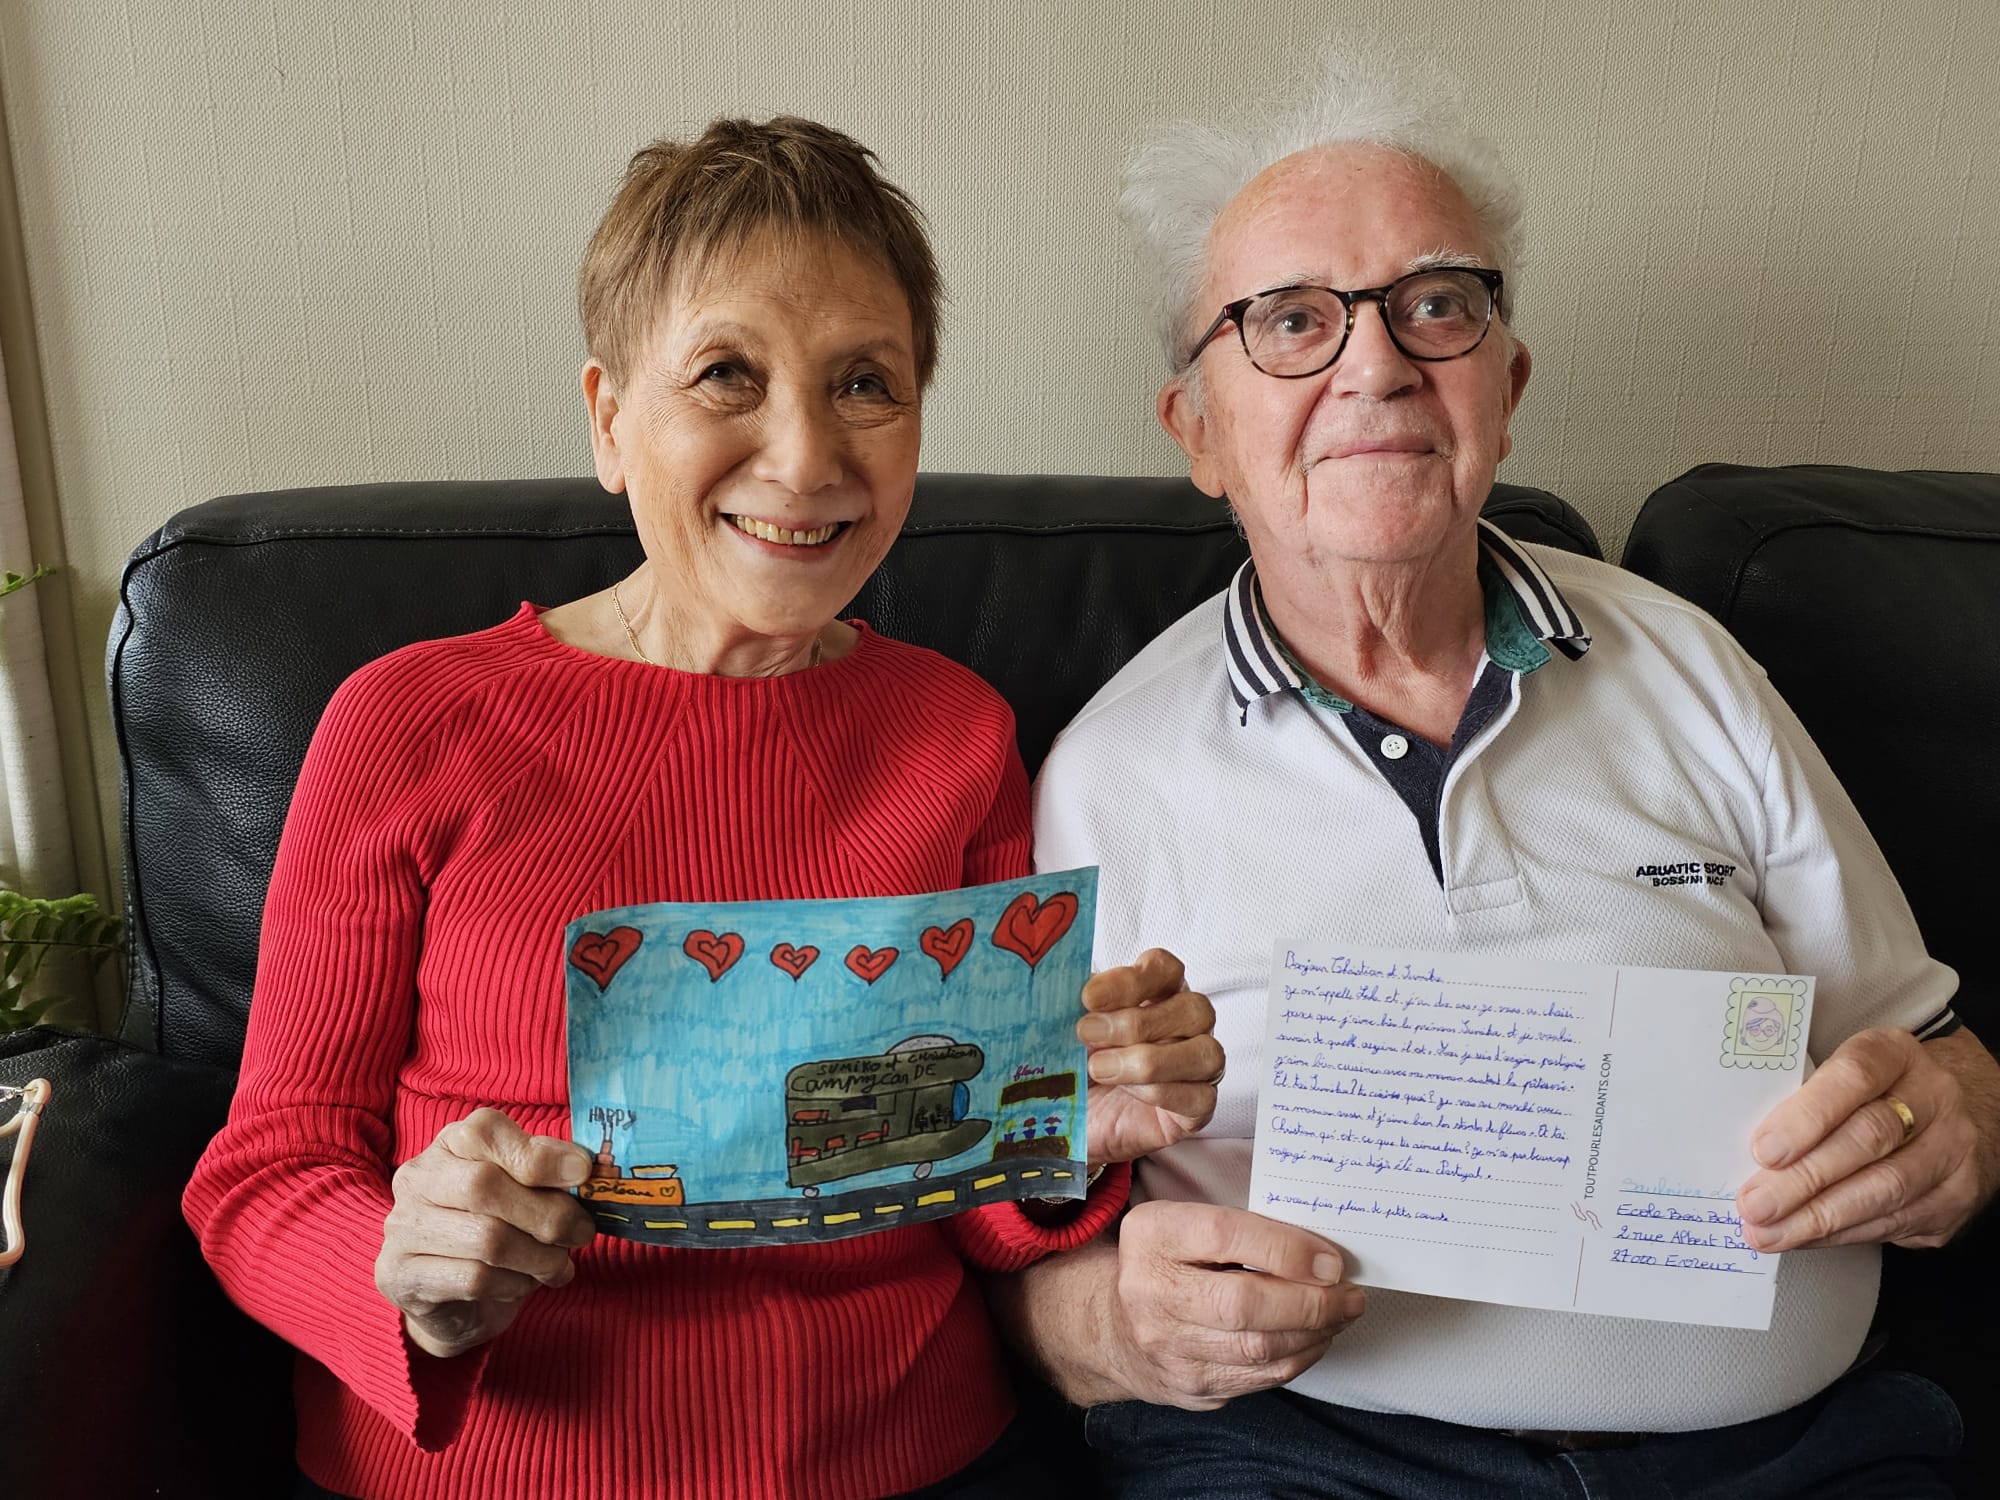 HAPPY
Gâteau
SUMIKO et Christian
Camping Car DE
fleurs
AQUATIC SPORT
BOSSINI
Bonjour Christian et Sumiko
Je m'appelle et j'ai dix ans. Je vous ai choisi
parce que j'aime bien le prénom Sumiko et je voulais
savoir de quelle origine il est. Moi je suis d'origine portugaise
j'aime bien cuisiner avec ma maman surtout la pâtisserie.
Et toi Sumiko? tu cuisines quoi? Je vais au marché avec
ma maman aussi et j'aime bien les stands de fleurs. Et toi
Christian qu'est-ce que tu aimes bien? Je n'ai pas beaucoup
voyagé mais j'ai déjà été au Portugal.
Je vous fais plein de petits coeurs
TOUTPOURLESAIDANTS.COM
Saulnier
Ecole Bois
2 rue Albert
27000 Evreux